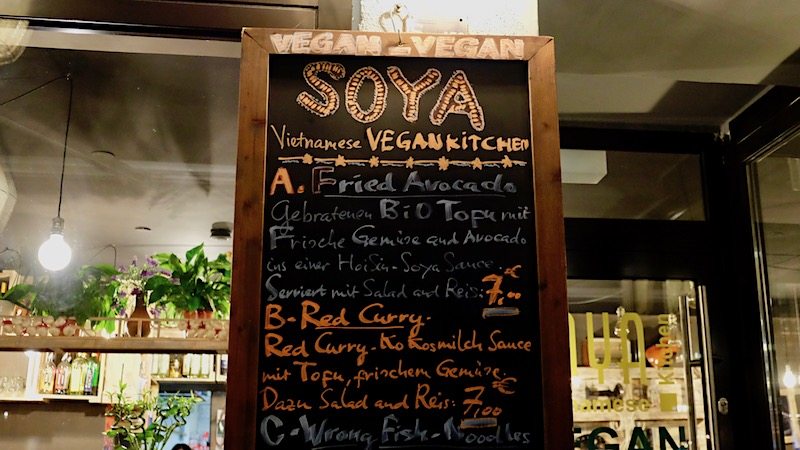 VEGAN - VEGAN
SOYA
Vietnamese VEGAN KITCHEN
A. Fried Avocado
Gebratenen BiO Tofu mit
Frische Gemüse and Avocado
ins einer HoiSin - Soya Sauce
Serviert mit Salad and Reis: 7,00 €
B - Red Curry -
Red Curry - Kokosmilch Sauce
mit Tofu, frischem Gemüse.
Dazu Salad and Reis: 7,00 €
C - Wrong Fish - Noodles
VEGAN